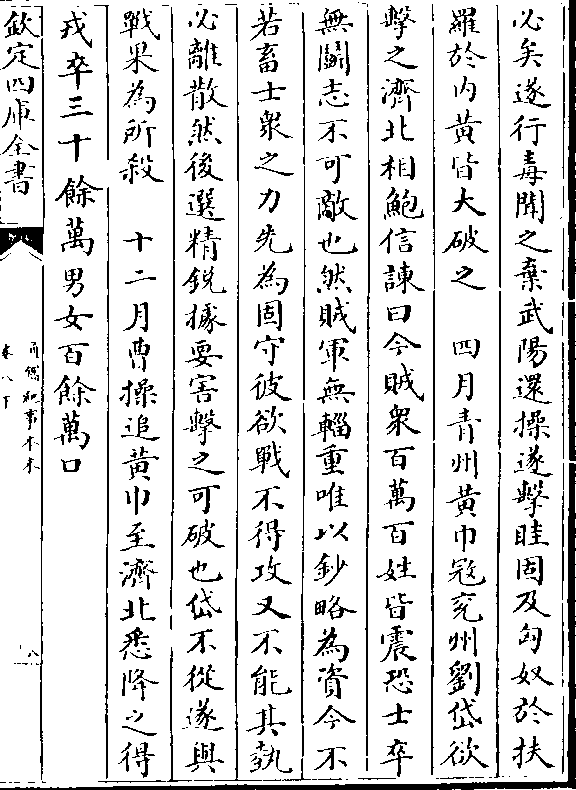 必矣遂行毒聞之棄武陽還操遂擊眭固及匈奴於扶
羅於内黄皆大破之　四月青州黄巾宼兖州劉岱欲
擊之濟北相鮑信諫曰今賊衆百萬百姓皆震恐士卒
無鬬志不可敵也然賊軍無輜重唯以鈔略為資今不
若畜士衆之力先為固守彼欲戰不得攻又不能其埶
必離散然後選精鋭據要害擊之可破也岱不從遂與
戰果為所殺　十二月曹操追黄巾至濟北悉降之得
戎卒三十餘萬男女百餘萬口
欽定四庫全書
通鑑紀事本末
卷八下
八